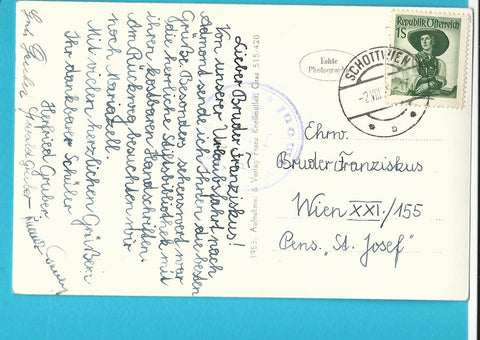 Lieber Bruder Franziskus!
Von unserer Urlaubsfahrt nach
Admont sende ich Ihnen die besten
Grüße. Besonders sehenswert war
die herrliche Stiftsbibliothek mit
ihren kostbaren Handschriften.
Am Rückweg besuchten wir
noch Mariazell.
Mit vielen herzlichen Grüßen
Ihr dankbarer Schüler
Herfried Gruber
1953. Aufnahme u. Verlag Franz Knollmüller, Graz 515:420
Echte
Photographie
Republik Österreich
1S
SCHOTTWIEN
-2.VIII
b
Ehrw.
Bruder Franziskus
Wien XXI./155
Pens. "St. Josef"